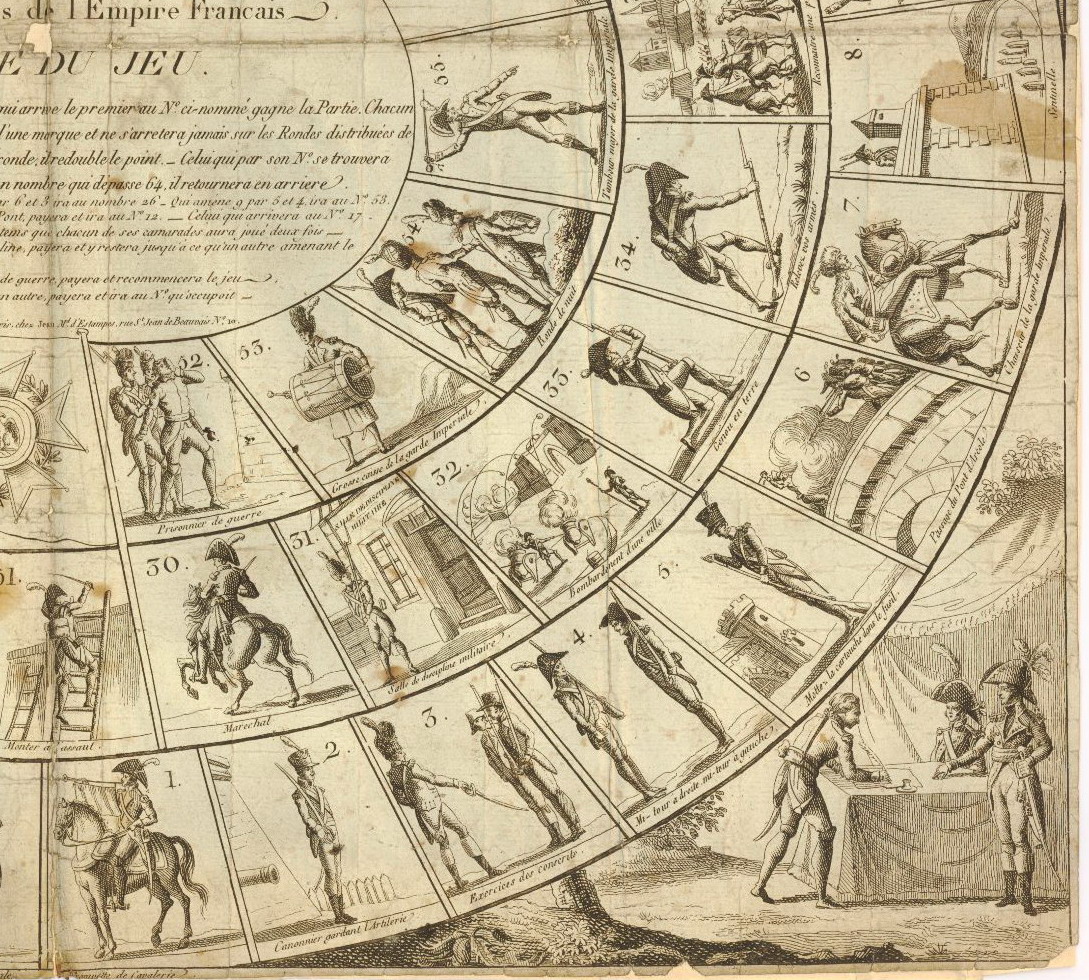 s de l'Empire Francais
E DU JEU.
qui arrive le premier au No. ci-nommé gagne la Partie. Chacun
d'une marque et ne s'arretera jamais sur les Rondes distribuées de
conde, il redouble le point. _ Celui qui par son No. se trouvera
n nombre qui dépasse 64, il retournera en arriere.
ar 6 et 3 ira au nombre 26 - Qui amene 9 par 5 et 4, ira au No. 53.
Pont, payera et ira au No. 12. __ Celui qui arrivera au No. 17 -
tems que chacun de ses camarades aura joué deux fois __
line, païera et y restera jusqu'a ce qu'un autre amenant le
de guerre, payera et recommencera le jeu
n autre, payera et ira au No. qu'occupoit _
ris, chez Jean Md. d'Estampes, rue St. Jean de Beauvais No. 10.
55.
Tambour major de la garde Imperiale
Ronde de nuit
53.
Grosse caisse de la garde Imperiale
52.
Prisonnier de guerre
51.
Monter a l'assaut.
30.
Marechal
31.
SALLE DE DISCIPLINE
MILITAIRE
Salle de discipline militaire
32.
Bombardement d'une ville
33.
Genou en terre
34.
vos armes
1.
2.
Canonnier gardant L'Artilerie
3.
Exercices des conscrits
4.
Mi-tour a droite mi-tour a gauche
5.
la cartouche dans le fusil
6
Passage du Pont
7.
de la garde Imperiale
8.
Sentinelle
de Cavalerie